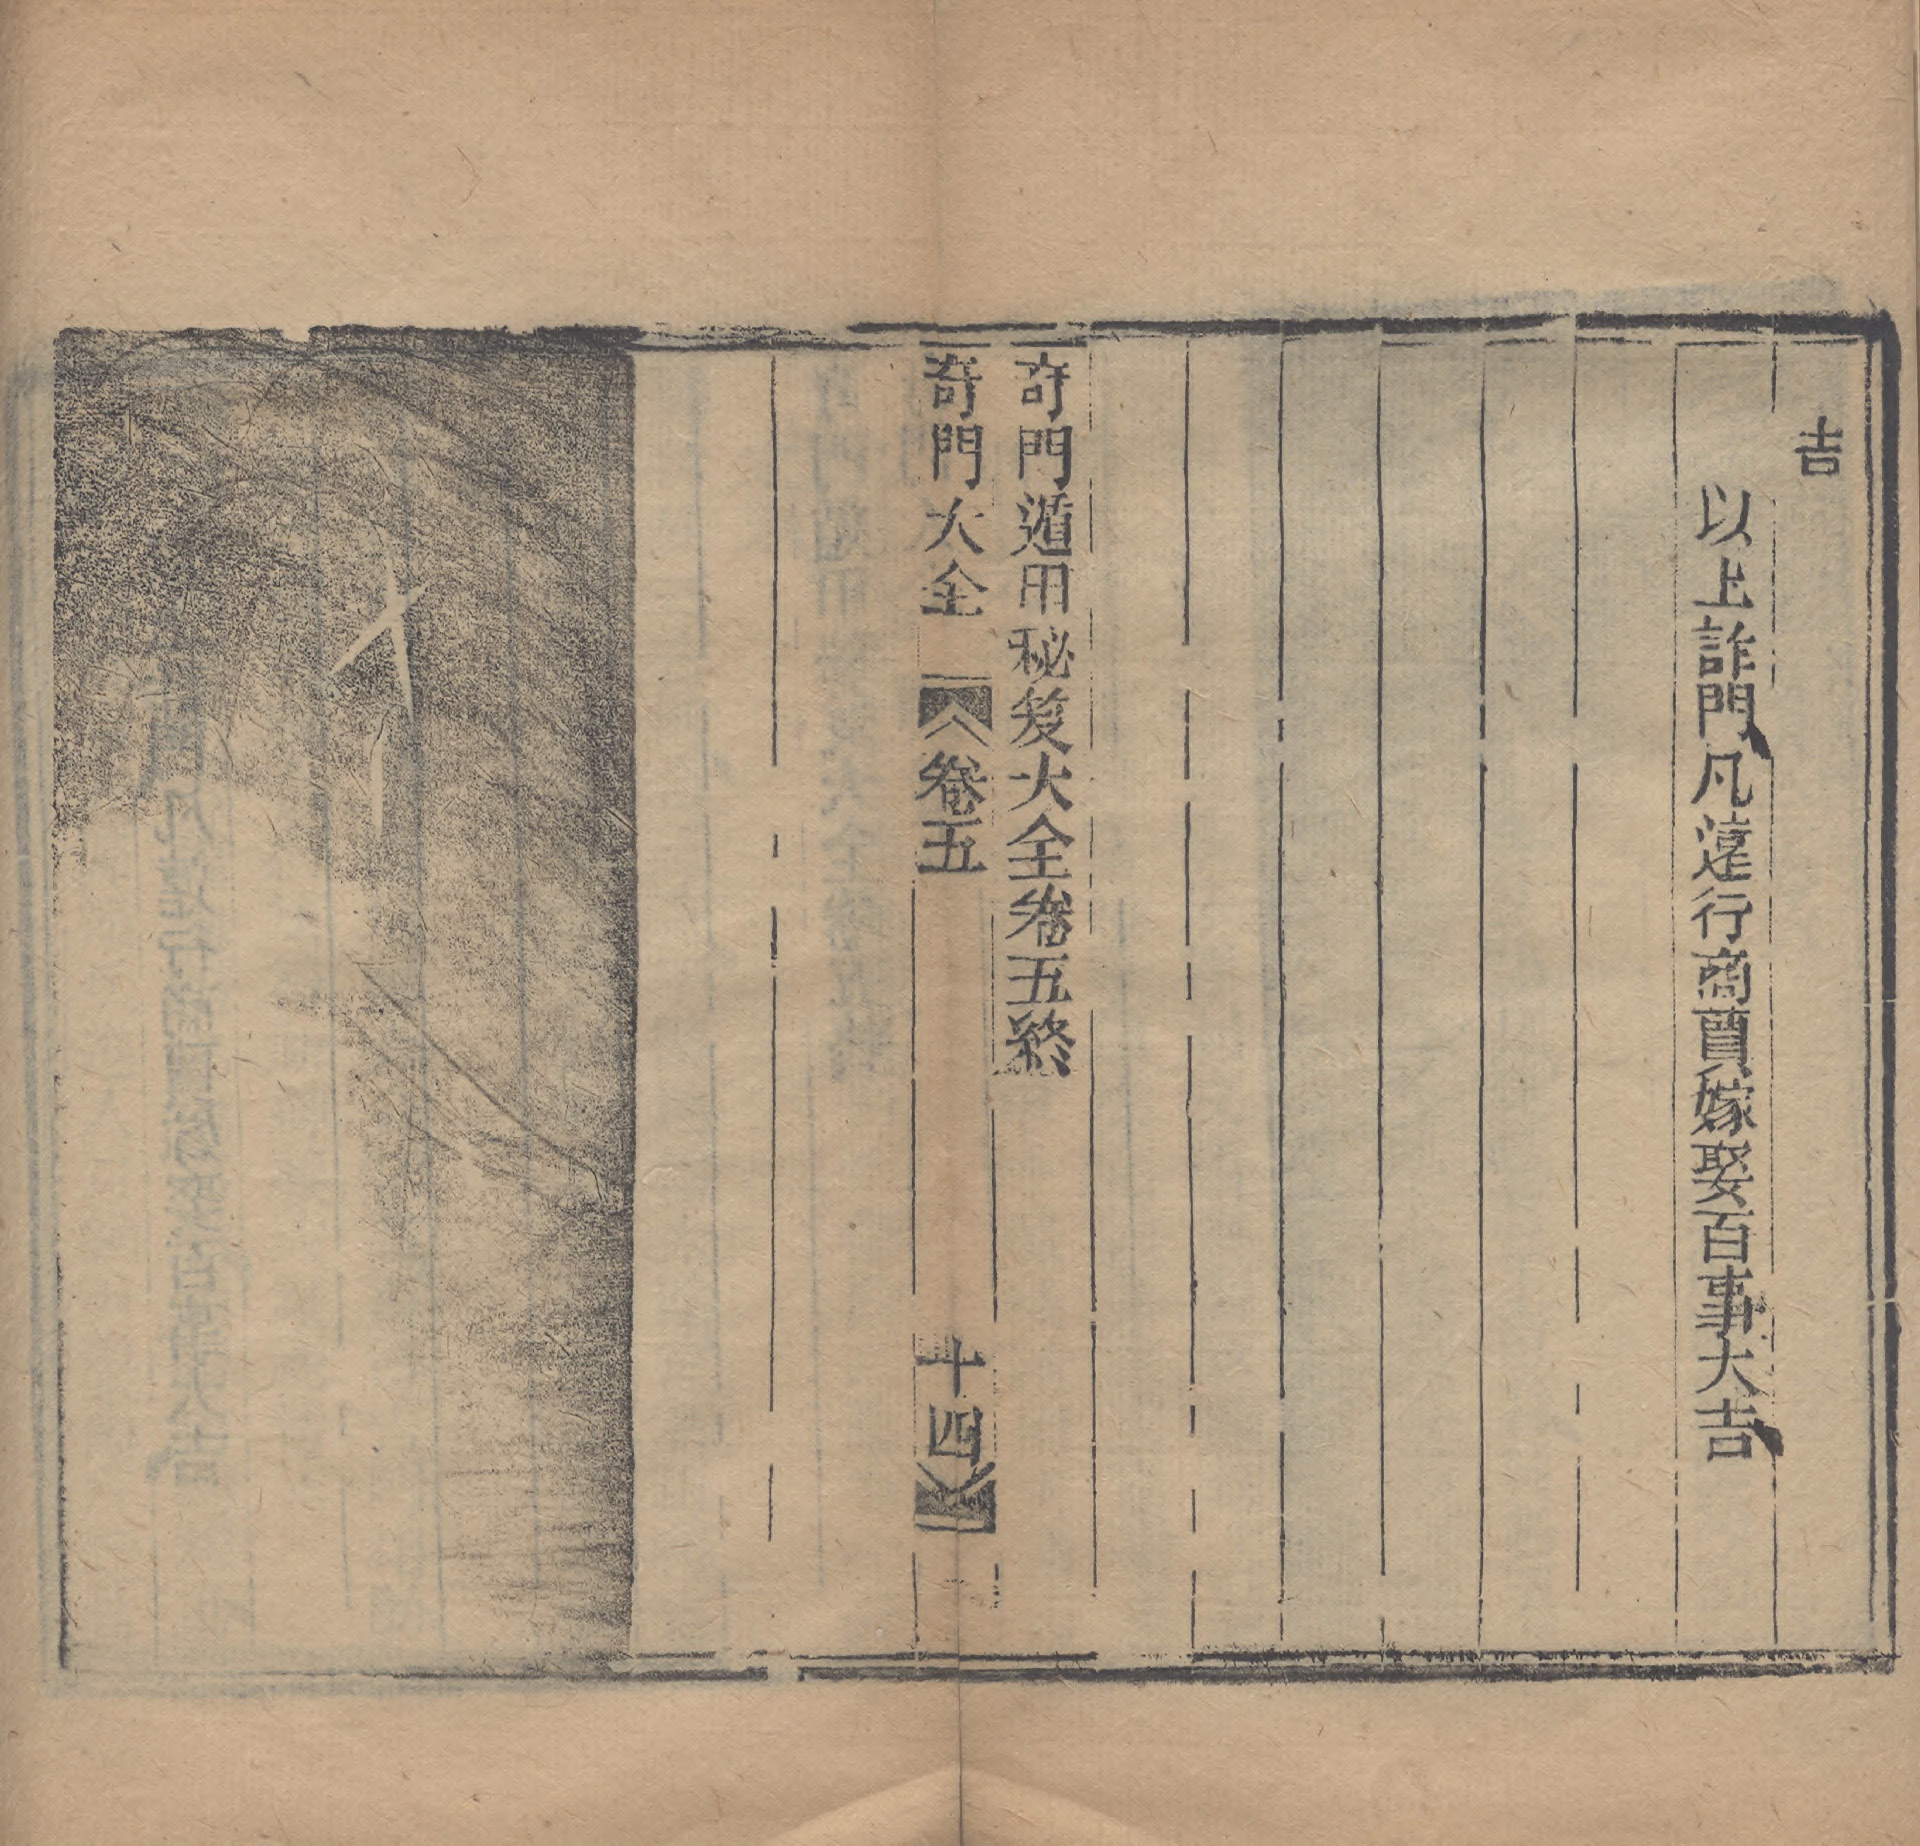 吉
以上詐門凡遠行商賈嫁娶百事大吉
奇門遁甲秘笈大全卷五終
奇門大全 卷五 十四